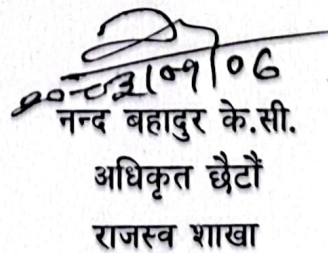 नन्द बहादुर के.सी.
अधिकृत छैटौं
राजस्व शाखा